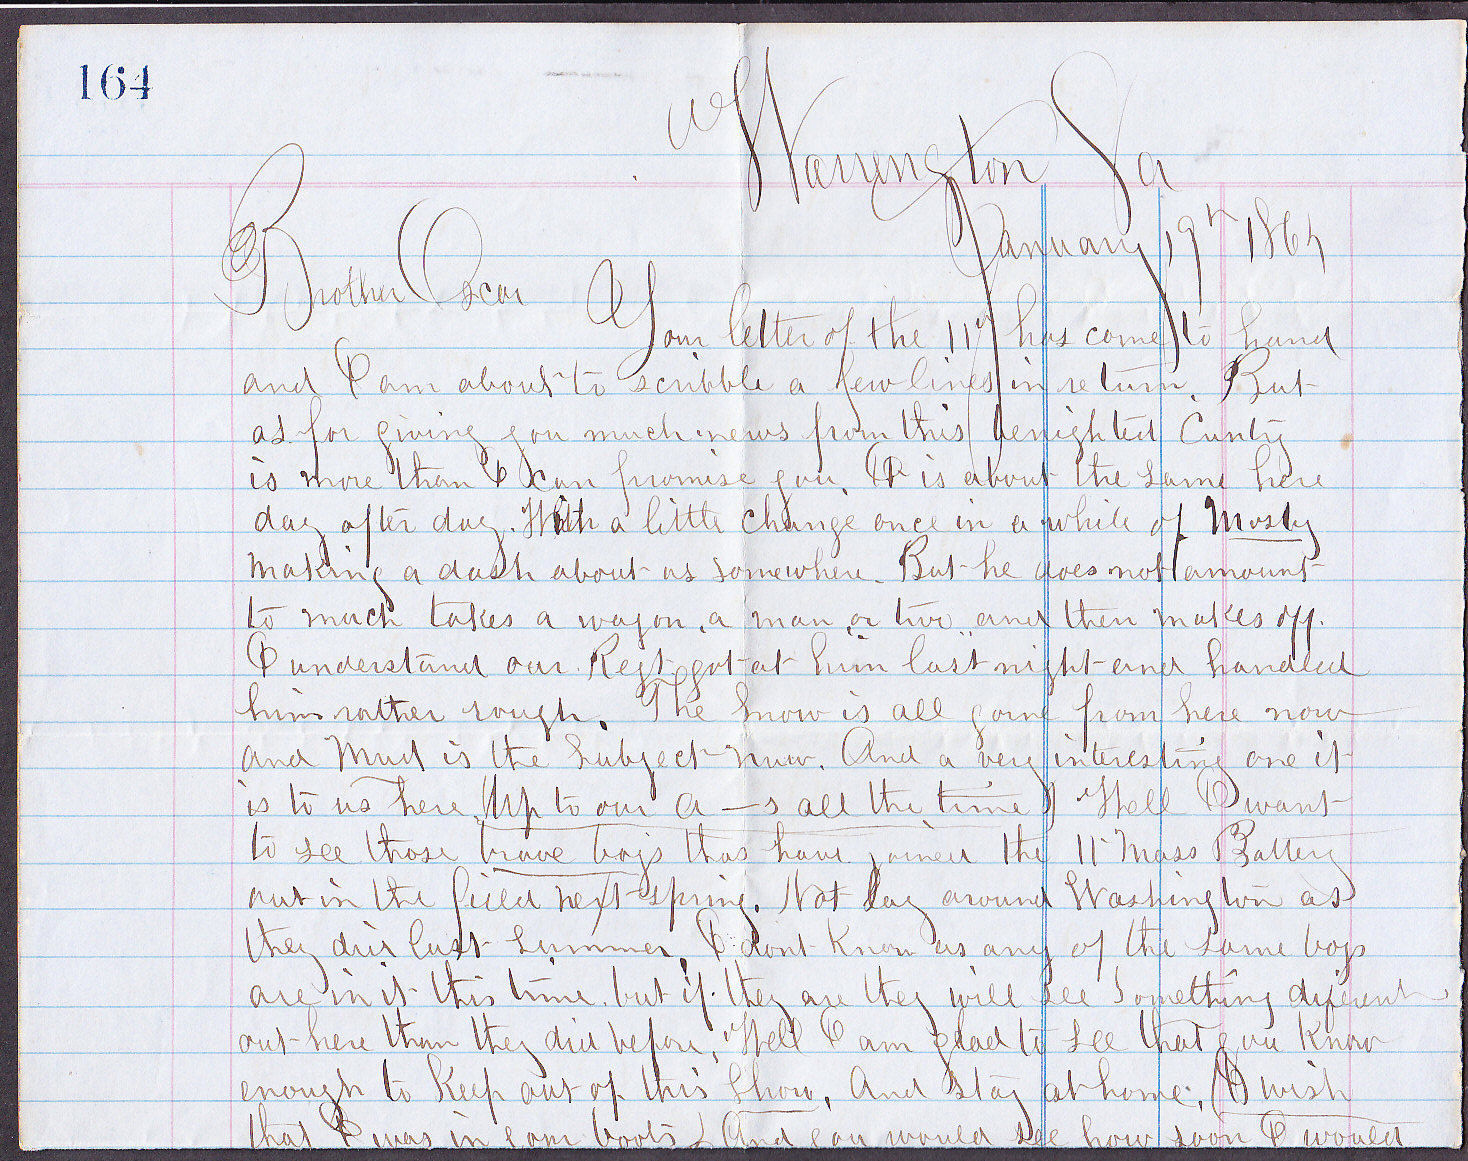 164
Warrington Va
January 19th 1864
Brother Oscar
Your letter of the 11th has come to hand
and I am about to scribble a few lines in return. But
as for giving you much news from this benighted Cuntry
is more than I can promise you. It is about the same here
day after day. With a little change once in a while of Mosby
making a dash about us somewhere. But he does not amount
to much takes a wagon, a man or two and then makes off.
I understand our Regt got at him last night and handled
him rather rough. The Snow is all gone from here now
and Mud is the Subject now. And a very interesting one it
is to us here (Up to our A—s all the time) Well I want
to see those brave boys thas have joined the 11 Mass Battery
out in the field next spring. Not lay around Washington as
they did last Summer. I dont Know as any of the same boys
are in it this time. but if they are they will see Something diferent
out here than they did before. Well I am glad to see that you Know
enough to Keep out of this Show, And stay at home. (I wish
that I was in your boots) And you would see how soon I would